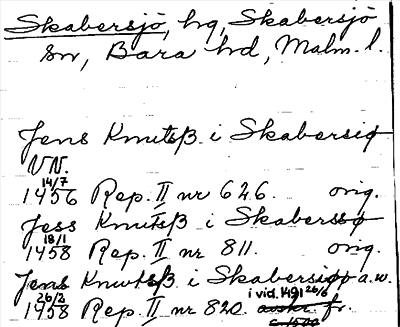 Skabersjö, hg, Skabersjö
sn, Bara hd, Malm. l.
Jens Knutsß i Skabersiø
VN.
14/7
1456 Rep. II nr 626. orig.
Jess Knutsß i Skabersø
18/1
1458 Rep. II nr 811. orig.
Jens Knutsß i Skabersiø a.w.
26/3 i vid. 1491 26/6
1458 Rep. II nr 820. avskr. fr.
c. 1500